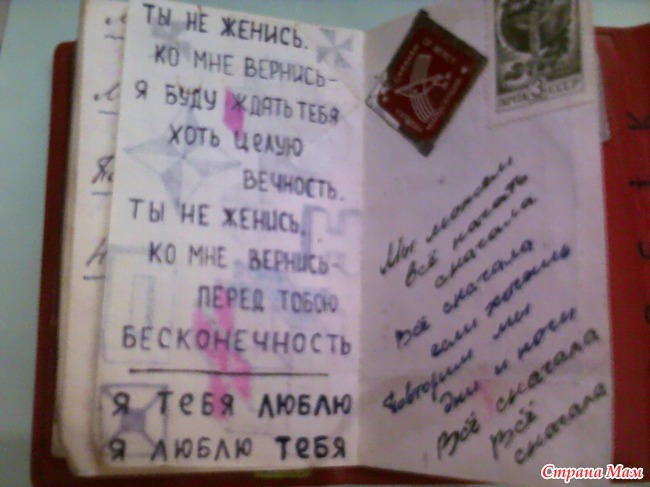 ТЫ НЕ ЖЕНИСЬ.
КО МНЕ ВЕРНИСЬ-
Я БУДУ ЖДАТЬ ТЕБЯ
ХОТЬ ЦЕЛУЮ
ВЕЧНОСТЬ.
ТЫ НЕ ЖЕНИСЬ.
КО МНЕ ВЕРНИСЬ-
ПЕРЕД ТОБОЮ
БЕСКОНЕЧНОСТЬ
Я ТЕБЯ ЛЮБЛЮ
Я ЛЮБЛЮ ТЕБЯ
ПОЧТА 3 СССР
Мы можем
всё начать
сначала
Всё сначала
если хочешь
Повторим мы
дни и ночи
Всё сначала
Всё
сначала
Страна Мам